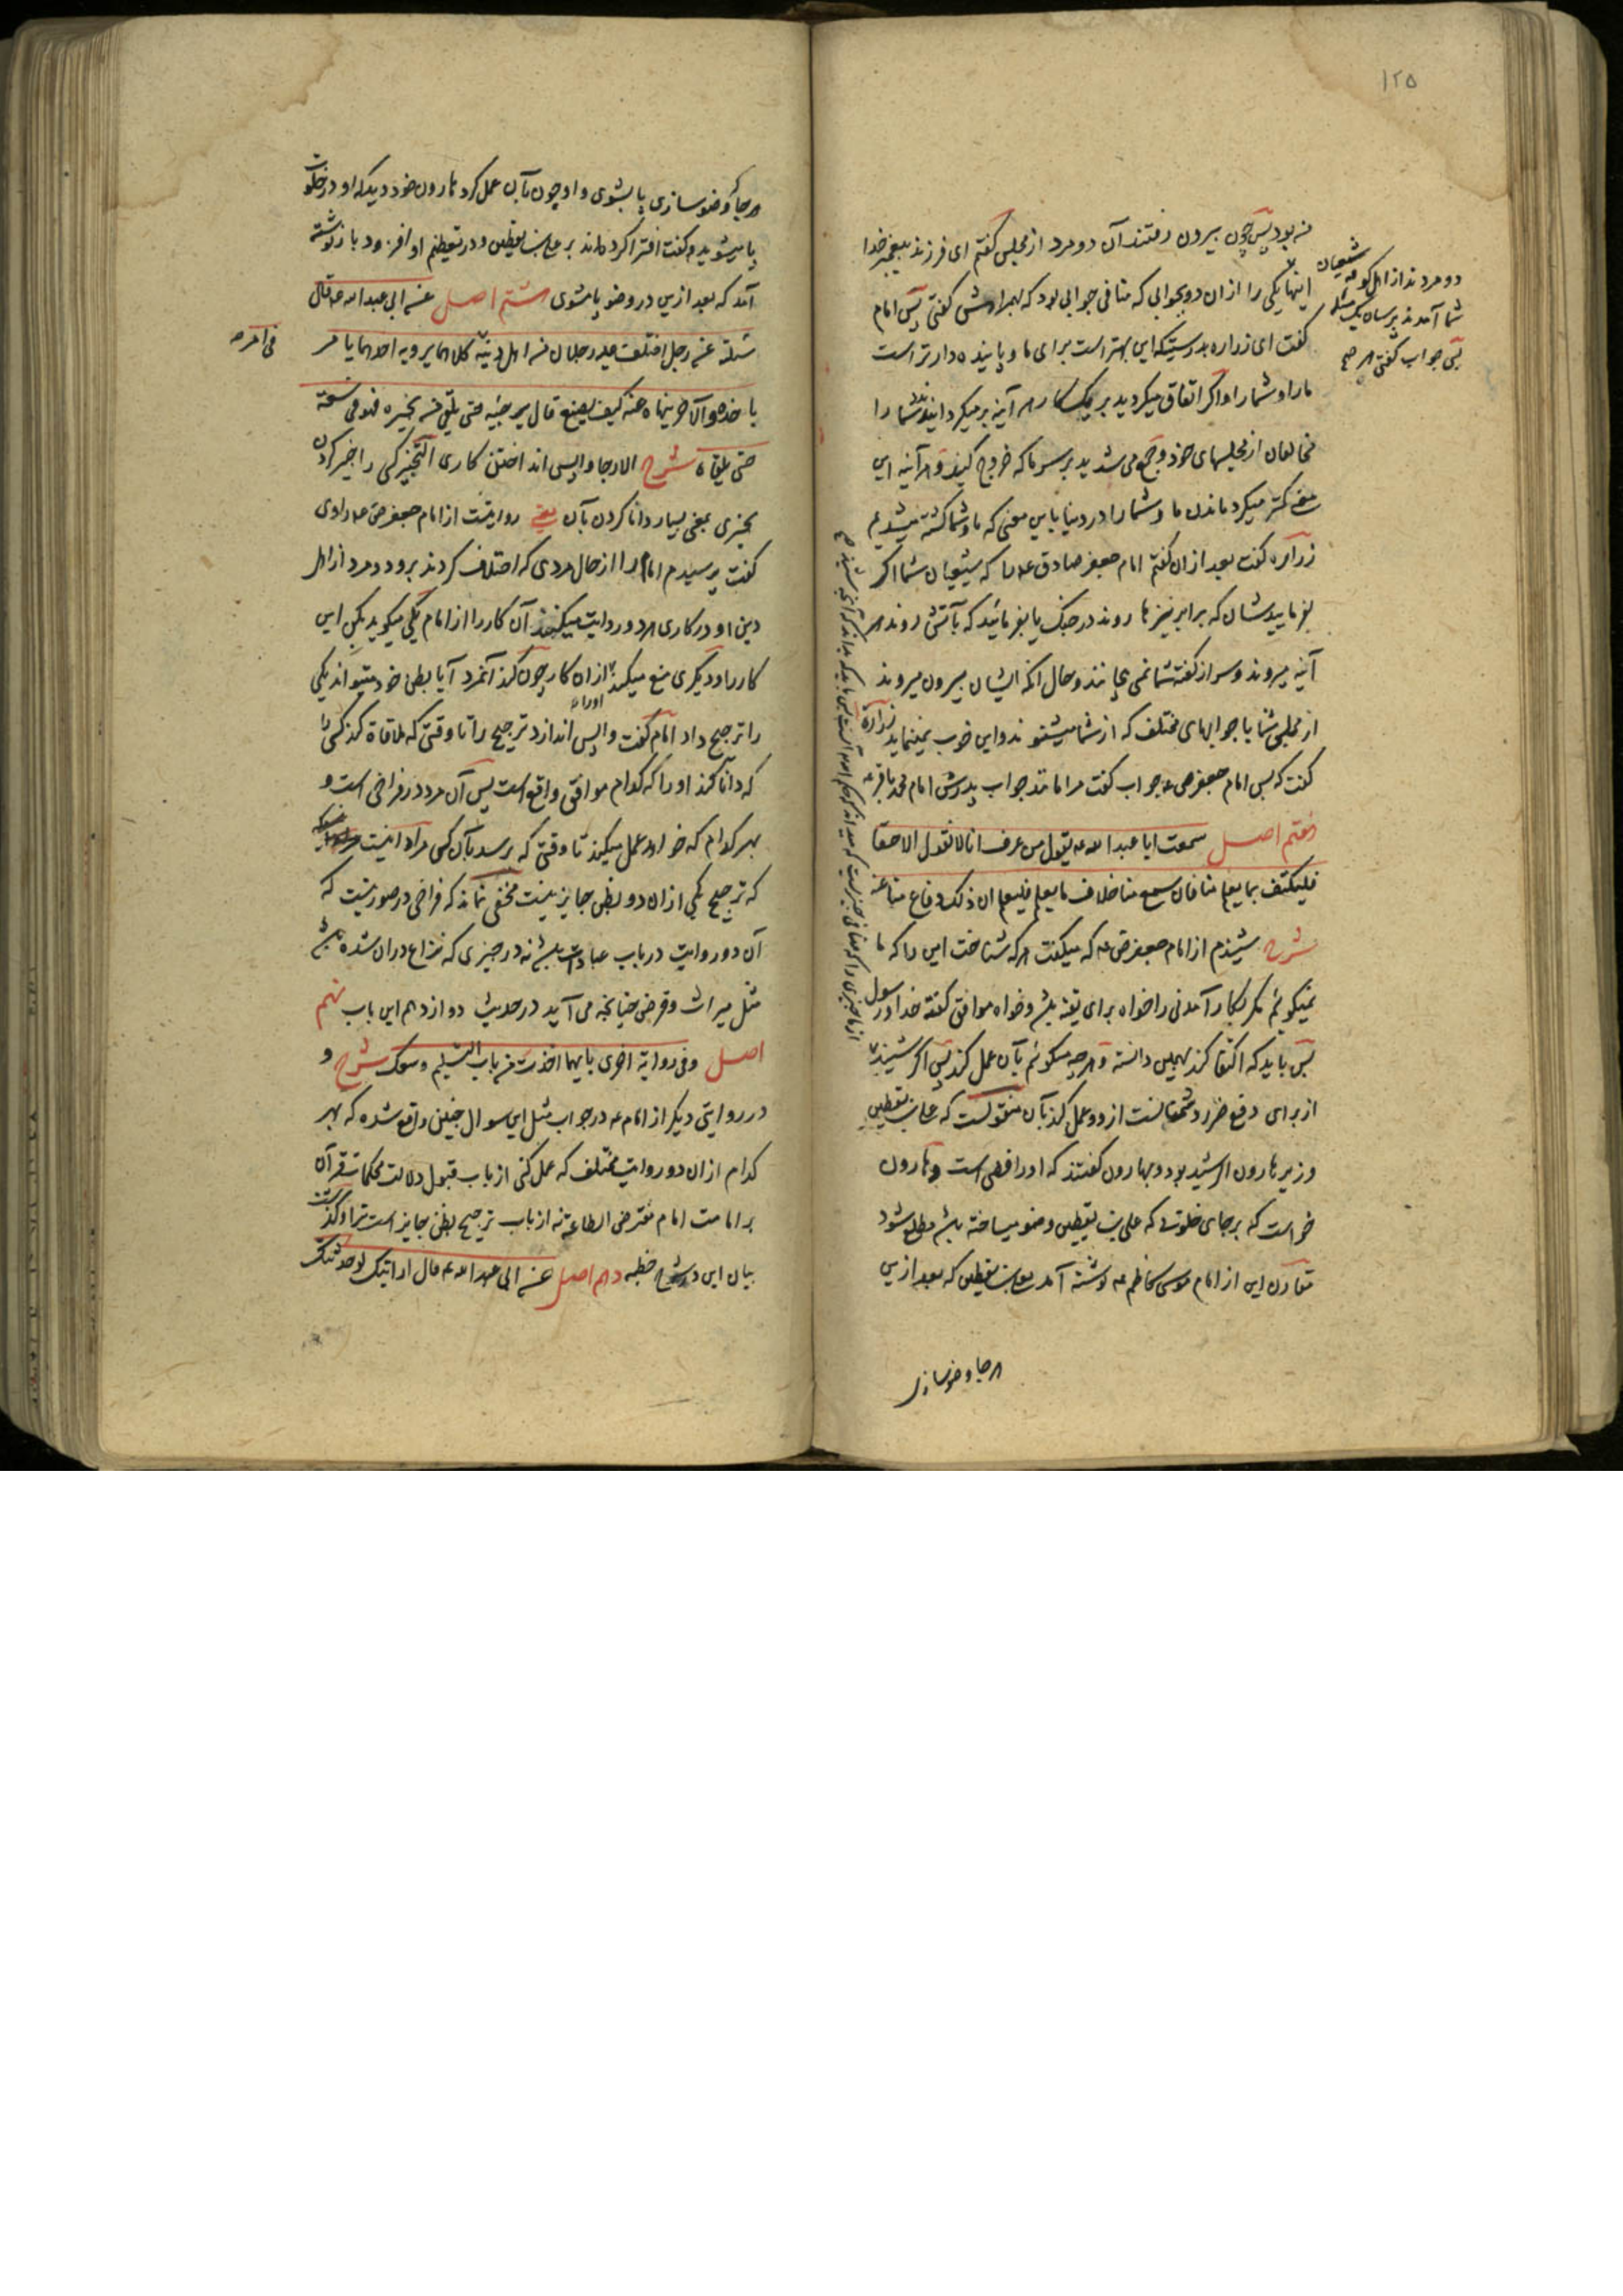 ۱۲۵
من بود پس چون بیرون رفتند آن دو مرد از مجلس گفتم ای فرزند پیغمبر خدا
دو مردند از اهل کوفه شیعیان
شما آمدند پرسان یک مسئله
اینها یکی را ازان دو بجوابی که منافی جوابی بود که بهمراهش گفتی پس امام
پس جواب گفتی هر صح
گفت ای زراره بدرستیکه این بهتر است برای ما و پاینده دارتر است
ما را و شما را و اگر اتفاق میکردید بر یک کار هر آینه برمیگردانیدند شما را
مخالفان از مجلسهای خود و جمع می شدید بر سر ما که خروج کنید و هر آینه این
معنی کمتر میکرد ماندن ما و شما را در دنیا باین معنی که ما و شما کشته میشدیم
زراره گفت بعد ازان گفتم امام جعفر صادق ع را که شیعیان شما اگر
بفرمایید شان که برابر نیزها روند در جنگ یا بفرمائید که بآتش روند هر
آینه میروند و سر از گفته شما نمی پیچانند و حال آنکه ایشان بیرون میروند
از مجلس شما با جوابهای مختلف که از شما میشنوند و این خوب نمینماید زراره
گفت که پس امام جعفر ص ع جواب گفت مرا مانند جواب پدرش امام محمد باقر ع
هفتم اصل سمعت ابا عبد الله ع یقول من عرف انا لا نقول الا حقا
فلیکتف بما یعلم منا فان سمع منا خلاف ما یعلم فلیعلم ان ذلک دفاع منا عنه
شرح شنیدم از امام جعفر ص ع که میگفت هر که شناخت این را که ما
نمیگوئیم مگر بکار آمدنی را خواه برای تقیه باشد و خواه موافق گفته خدا و رسول
پس باید که اکتفا کند بهمین دانسته و هر چه میگوئیم بآن عمل کند پس اگر شنید
از ما چیزی را که منافی چیزیست که میداند که حکم
از برای دفع ضرر دشمنانست ازو و عمل کند بآن منقولست که علی بن یقطین
وزیر هارون الرشید بود و بهارون گفتند که او رافضی است و هارون
خواست که بر جای خلوتی که علی بن یقطین وضو میساخته باشد مطلع شود
مقارن این از امام موسی کاظم ع نوشته آمد بعلی بن یقطین که بعد ازین
هر جا وضو سازی
هر جا که وضو سازی پا بشوی و او چون بآن عمل کرد هارون خود دید که او در خلوت
پا میشوید و گفت افترا کرده اند بر علی بن یقطین و در تعظیم او افزود باز نوشته
آمد که بعد ازین در وضو پا مشوی هشتم اصل عن ابی عبد الله ع قال
سئلته عن رجل اختلف علیه رجلان من اهل دینه کلاهما یرویه احدهما یامر
فی امر ص
باخذه و الآخر ینهاه عنه کیف یصنع قال یرجئه حتی یلقی من یخبره فهو فی سعة
حتی یلقاه شرح الارجا واپس انداختن کاری التخبیر کسی را خبر کردن
بچیزی بمعنی بسیار دانا کردن بآن یعنی روایتست از امام جعفر ص ع راوی
گفت پرسیدم امام را از حال مردی که اختلاف کردند برو دو مرد از اهل
دین او در کاری هر دو روایت میکنند آن کار را از امام یکی میگوید بکن این
کار را و دیگری منع میکند ازان کار چون کند آنمرد آیا بظن خود میتواند یکی
را ترجیح داد امام گفت واپس اندازد ترجیح را تا وقتی که ملاقاة کند کسی را
که دانا کند او را که کدام موافق واقع است پس آن مرد در فراخی است و
بهر کدام که خواهد عمل میکند تا وقتی که برسد بآن کس مراد اینست
که ترجیح یکی ازان دو بظن جایز نیست مخفی نماند که فراخی در صورتیست که
آن دو روایت در باب عبادت باشد نه در چیزی که نزاع دران شده باشد
مثل میراث و قرض چنانچه می آید در حدیث دوازدهم این باب نهم
اصل و فی روایة اخری بایهما اخذت من باب التسلیم وسعک شرح و
در روایتی دیگر از امام ع در جواب مثل این سوال چنین واقع شده که بهر
کدام ازان دو روایت مختلف که عمل کنی از باب قبول دلالت محکمات قرآن
بر امامت امام مفترض الطاعة نه از باب ترجیح بظن جایز است ترا و گذشت
بیان این در شرح خطبه دهم اصل عن ابی عبد الله ع قال ارایتک لو حدثتک